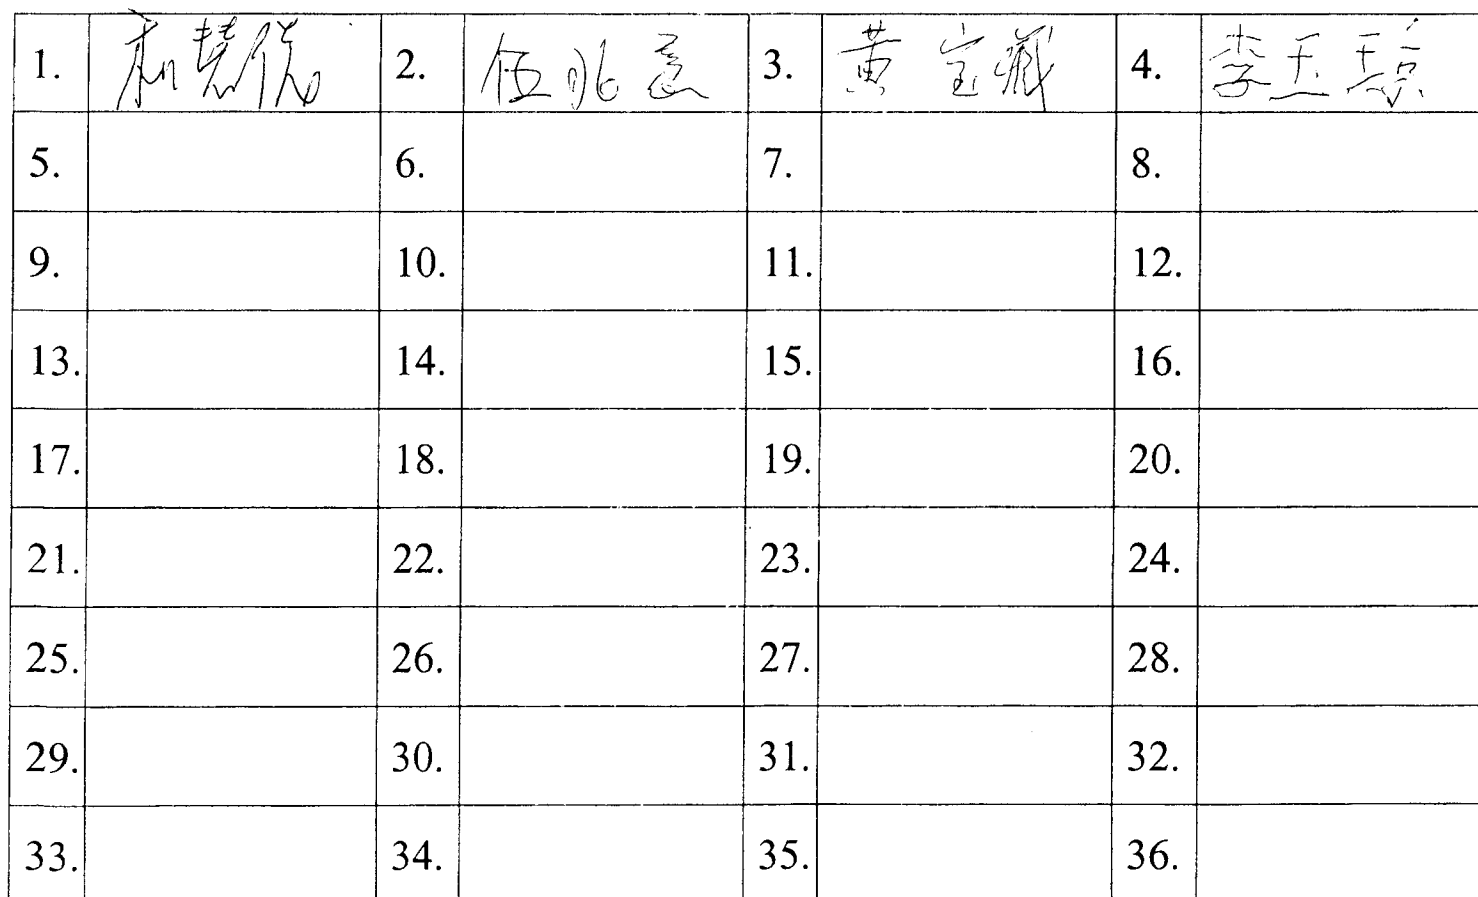 1. 2. 伍兆 3. 黄宝藏 4. 李玉琼
5. 6. 7. 8.
9. 10. 11. 12.
13. 14. 15. 16.
17. 18. 19. 20.
21. 22. 23. 24.
25. 26. 27. 28.
29. 30. 31. 32.
33. 34. 35. 36.